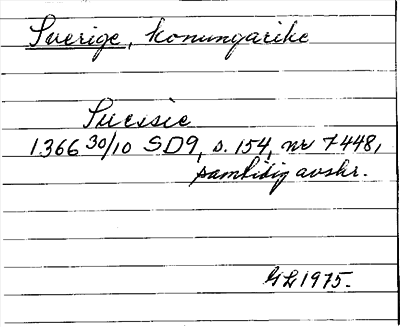 Sverige, konungarike
Suessie
1366 30/10 SD9, s. 154, nr 7448,
samtidig avskr.
GL 1975.